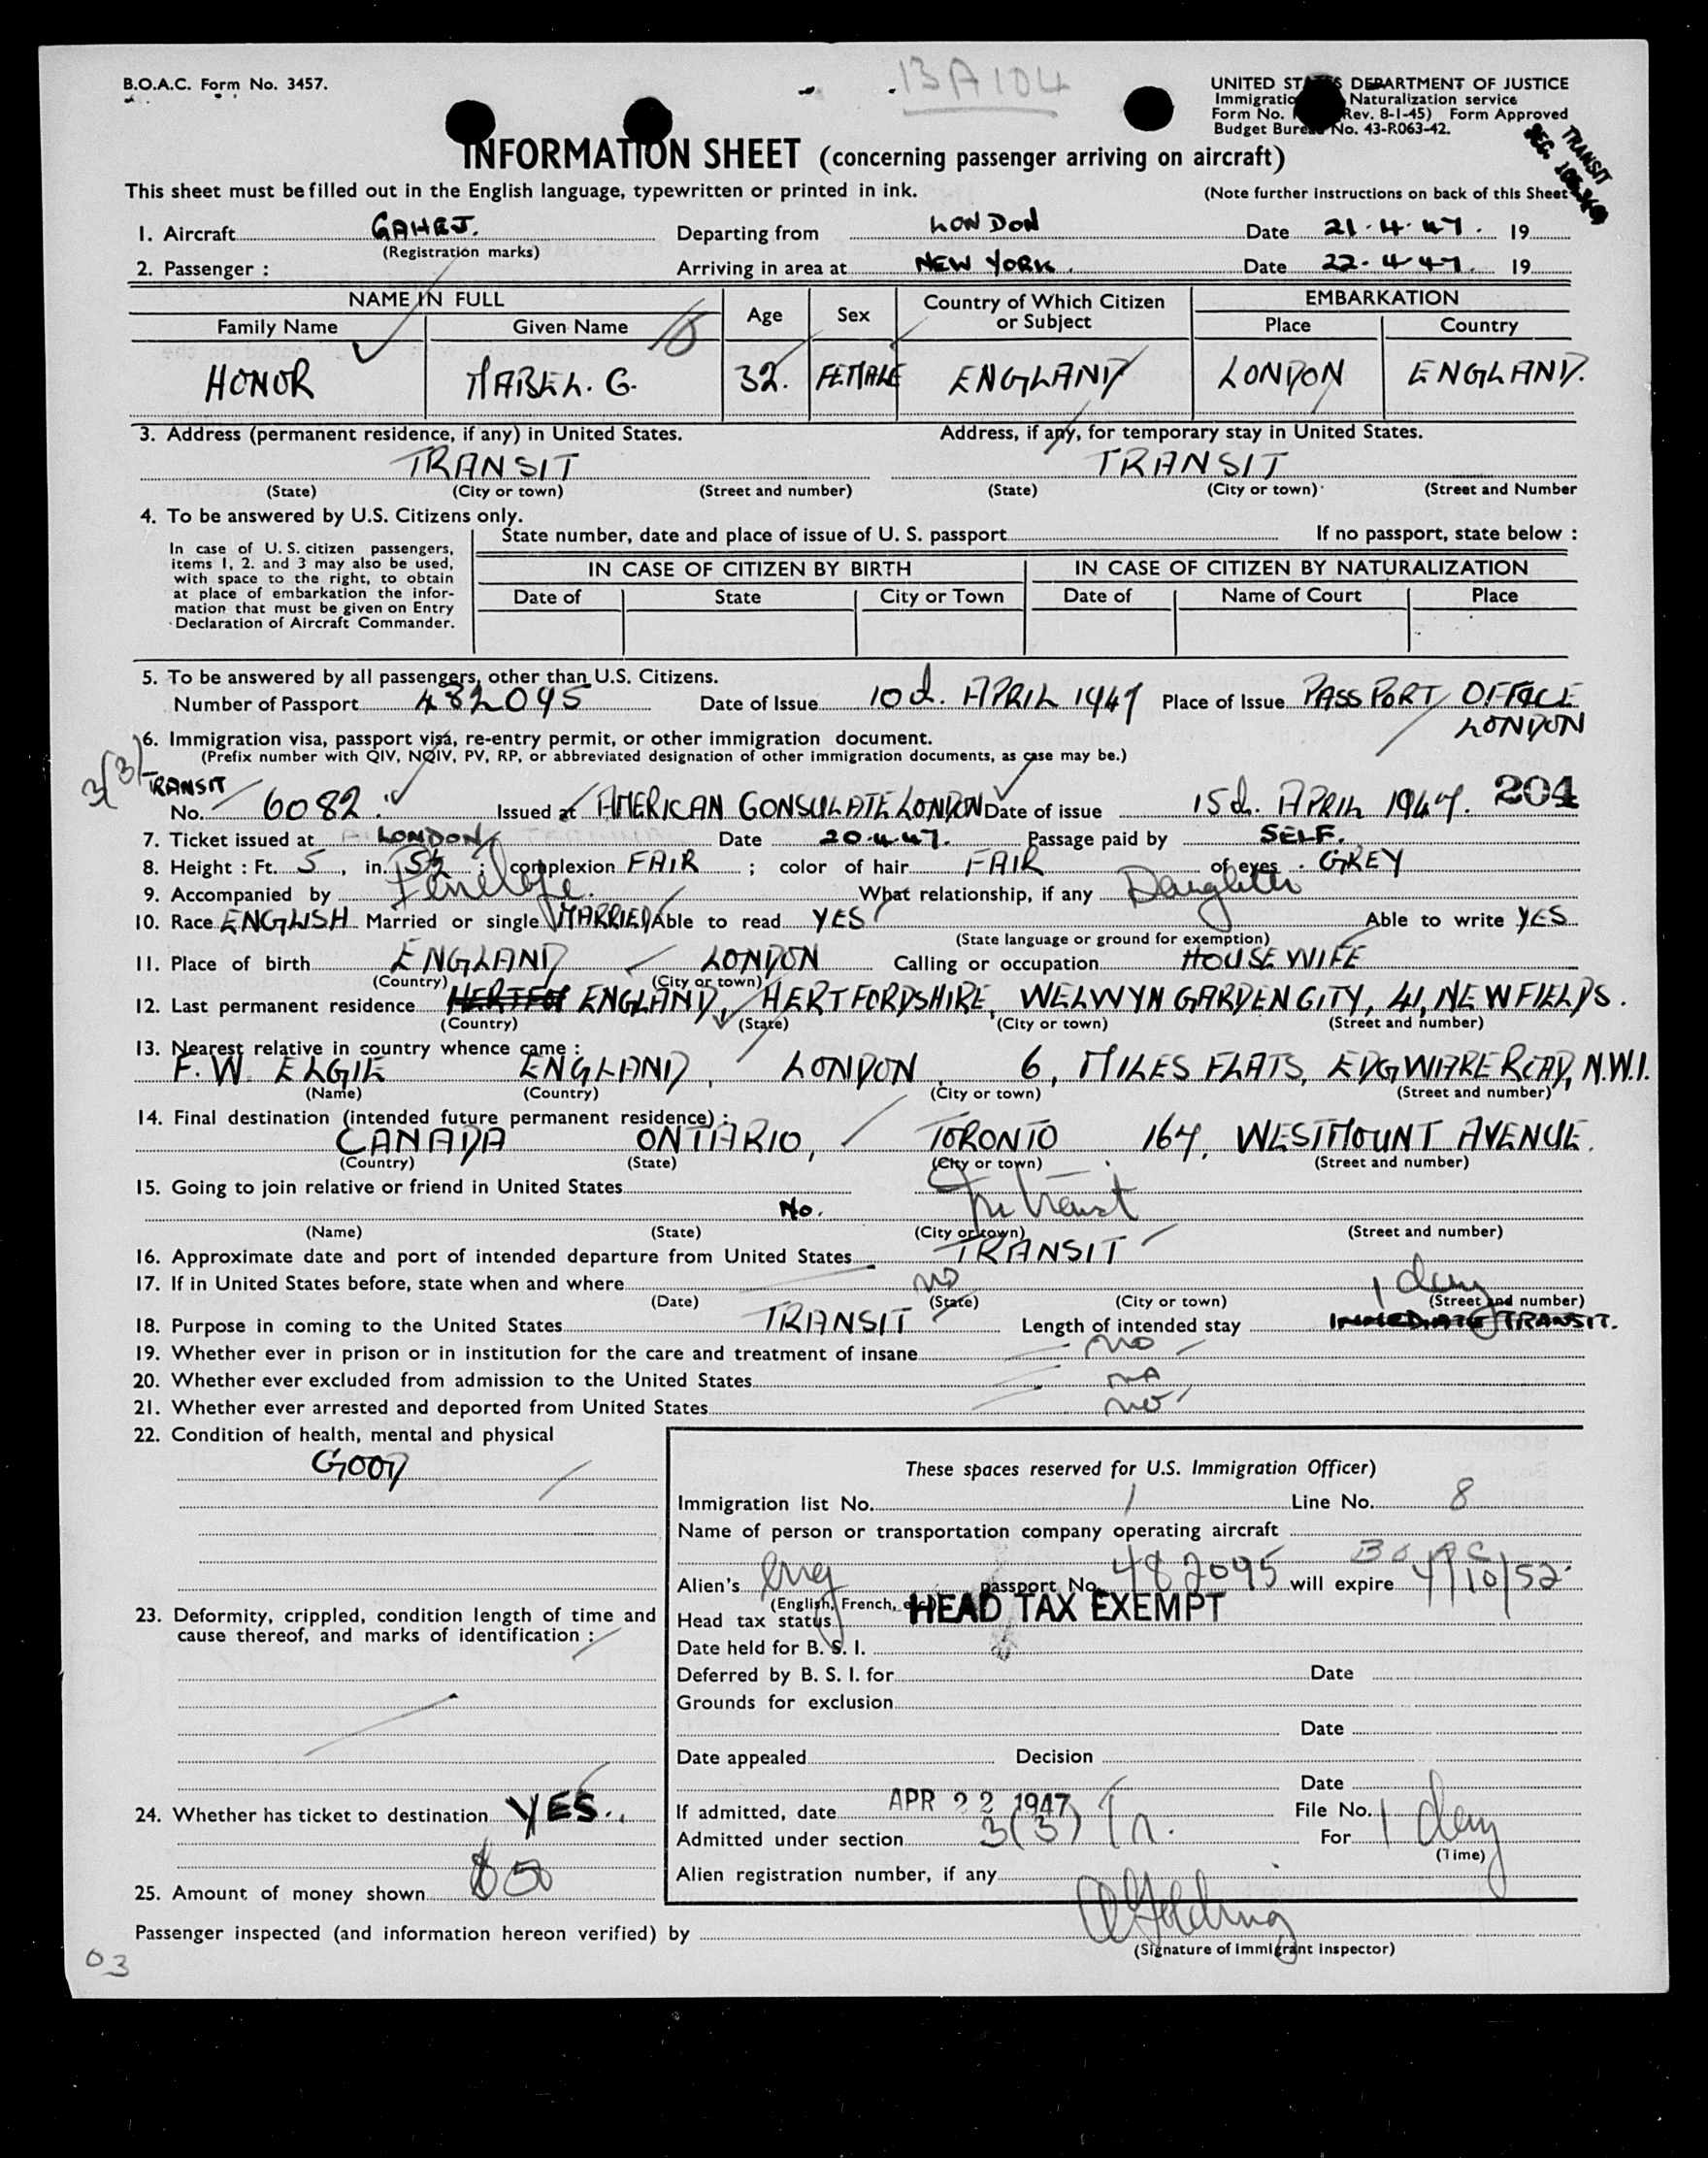 B.O.A.C. Form No. 3457.
13A104
UNITED STATES DEPARTMENT OF JUSTICE
Immigratio Naturalization service
Form No. Rev. 8-1-45) Form Approved
Budget Bureau No. 43-R063-42.
TRANSIT
SEC.
INFORMATION SHEET (concerning passenger arriving on aircraft)
This sheet must be filled out in the English language, typewritten or printed in ink.
(Note further instructions on back of this Sheet
1. Aircraft GAHEJ. Departing from LONDON Date 21.4.47. 19
(Registration marks)
2. Passenger : Arriving in area at NEW YORK. Date 22.4.47. 19
NAME IN FULL Age Sex Country of Which Citizen or Subject EMBARKATION
Family Name Given Name Place Country
HONOR MABEL. G. 32. FEMALE ENGLAND LONDON ENGLAND.
3. Address (permanent residence, if any) in United States. Address, if any, for temporary stay in United States.
TRANSIT TRANSIT
(State) (City or town) (Street and number) (State) (City or town) (Street and Number
4. To be answered by U.S. Citizens only.
State number, date and place of issue of U. S. passport If no passport, state below :
In case of U. S. citizen passengers,
items 1, 2. and 3 may also be used,
with space to the right, to obtain
at place of embarkation the infor-
mation that must be given on Entry
Declaration of Aircraft Commander.
IN CASE OF CITIZEN BY BIRTH IN CASE OF CITIZEN BY NATURALIZATION
Date of State City or Town Date of Name of Court Place
5. To be answered by all passengers, other than U.S. Citizens.
Number of Passport 482095 Date of Issue 10th. APRIL 1947 Place of Issue PASSPORT OFFICE
LONDON
6. Immigration visa, passport visa, re-entry permit, or other immigration document.
(Prefix number with QIV, NQIV, PV, RP, or abbreviated designation of other immigration documents, as case may be.)
3(3)
TRANSIT
No. 6082. Issued at AMERICAN CONSULATE LONDON Date of issue 15th. APRIL 1947. 204
7. Ticket issued at LONDON Date 20.4.47. Passage paid by SELF.
8. Height : Ft. 5, in. 5½ ; complexion FAIR ; color of hair FAIR of eyes GREY
9. Accompanied by Penelope. What relationship, if any Daughter
10. Race ENGLISH Married or single MARRIED Able to read YES Able to write YES
(State language or ground for exemption)
11. Place of birth ENGLAND LONDON Calling or occupation HOUSEWIFE
(Country) (City or town)
12. Last permanent residence ENGLAND, HERTFORDSHIRE, WELWYN GARDEN CITY, 41, NEWFIELDS.
(Country) (State) (City or town) (Street and number)
13. Nearest relative in country whence came :
F. W. ELGIE ENGLAND, LONDON, 6, MILES FLATS, EDGWARE ROAD, N.W.1.
(Name) (Country) (City or town) (Street and number)
14. Final destination (intended future permanent residence) :
CANADA ONTARIO, TORONTO 167, WESTMOUNT AVENUE.
(Country) (State) (City or town) (Street and number)
15. Going to join relative or friend in United States
No. In transit
(Name) (State) (City or town) (Street and number)
16. Approximate date and port of intended departure from United States TRANSIT
17. If in United States before, state when and where no
1 day
(Date) (State) (City or town) (Street and number)
18. Purpose in coming to the United States TRANSIT Length of intended stay IMMEDIATE TRANSIT.
19. Whether ever in prison or in institution for the care and treatment of insane no
20. Whether ever excluded from admission to the United States no
21. Whether ever arrested and deported from United States no
22. Condition of health, mental and physical
GOOD
These spaces reserved for U.S. Immigration Officer)
Immigration list No. 1 Line No. 8
Name of person or transportation company operating aircraft
BOAC
Alien's Eng passport No. 482095 will expire 4/10/52
(English, French, etc.)
23. Deformity, crippled, condition length of time and
cause thereof, and marks of identification :
Head tax status HEAD TAX EXEMPT
Date held for B. S. I.
Deferred by B. S. I. for Date
Grounds for exclusion
Date
Date appealed Decision
Date
24. Whether has ticket to destination YES.
If admitted, date APR 22 1947 File No.
Admitted under section 3(3) Tr. For 1 day
(Time)
Alien registration number, if any
25. Amount of money shown $50
Passenger inspected (and information hereon verified) by
(Signature of Immigrant Inspector)
03